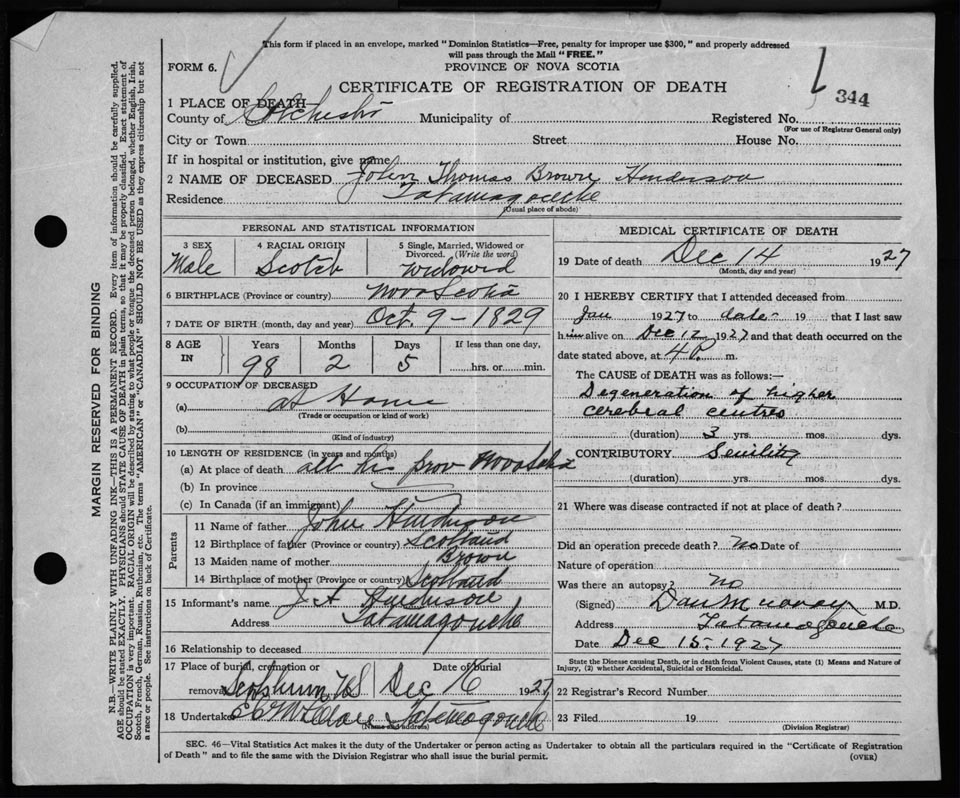 This form if placed in an envelope, marked "Dominion Statistics—Free, penalty for improper use $300," and properly addressed
will pass through the Mail "FREE."
FORM 6.
PROVINCE OF NOVA SCOTIA
CERTIFICATE OF REGISTRATION OF DEATH
344
1 PLACE OF DEATH
County of Colchester Municipality of Registered No.
(For use of Registrar General only)
City or Town Street House No.
If in hospital or institution, give name
2 NAME OF DECEASED John Thomas Brown Henderson
Residence Tatamagouche
(Usual place of abode)
PERSONAL AND STATISTICAL INFORMATION
3 SEX 4 RACIAL ORIGIN 5 Single, Married, Widowed or
Divorced. (Write the word)
Male Scotch Widowed
6 BIRTHPLACE (Province or country) Nova Scotia
7 DATE OF BIRTH (month, day and year) Oct. 9 - 1829
8 AGE IN Years Months Days If less than one day,
98 2 5 hrs. or min.
9 OCCUPATION OF DECEASED
(a) at Home
(Trade or occupation or kind of work)
(b)
(Kind of industry)
10 LENGTH OF RESIDENCE (in years and months)
(a) At place of death all his prov Nova Scotia
(b) In province
(c) In Canada (if an immigrant)
Parents
11 Name of father John Henderson
12 Birthplace of father (Province or country) Scotland
13 Maiden name of mother Brown
14 Birthplace of mother (Province or country) Scotland
15 Informant's name J A Henderson
Address Tatamagouche
16 Relationship to deceased
17 Place of burial, cremation or Date of burial
removal N.S. Dec 16 1927
18 Undertaker Tatamagouche
(Name and address)
MEDICAL CERTIFICATE OF DEATH
19 Date of death Dec 14 1927
(Month, day and year)
20 I HEREBY CERTIFY that I attended deceased from
Jan 1927 to date 19 that I last saw
him alive on Dec 12 1927 and that death occurred on the
date stated above, at 4 P. m.
The CAUSE OF DEATH was as follows:—
Degeneration of higher
cerebral centres
(duration) 3 yrs. mos. dys.
CONTRIBUTORY Senility
(duration) yrs. mos. dys.
21 Where was disease contracted if not at place of death?
Did an operation precede death? No Date of
Nature of operation
Was there an autopsy? no
(Signed) Dan Murray M.D.
Address Tatamagouche
Date Dec 15, 1927
State the Disease causing Death, or in death from Violent Causes, state (1) Means and Nature of
Injury, (2) whether Accidental, Suicidal or Homicidal.
22 Registrar's Record Number
23 Filed 19
(Division Registrar)
SEC. 46—Vital Statistics Act makes it the duty of the Undertaker or person acting as Undertaker to obtain all the particulars required in the "Certificate of Registration
of Death" and to file the same with the Division Registrar who shall issue the burial permit. (OVER)
MARGIN RESERVED FOR BINDING
N.B.—WRITE PLAINLY WITH UNFADING INK—THIS IS A PERMANENT RECORD. Every item of information should be carefully supplied.
AGE should be stated EXACTLY. PHYSICIANS should STATE CAUSE OF DEATH in plain terms, so that it may be properly classified. Exact statement of
OCCUPATION is very important. RACIAL ORIGIN will be described by stating to what people or tongue the deceased person belonged, whether English, Irish,
Scotch, French, German, Russian, Ruthenian, etc. The terms "AMERICAN" or "CANADIAN" SHOULD NOT BE USED as they express citizenship but not
a race or people. See instructions on back of Certificate.